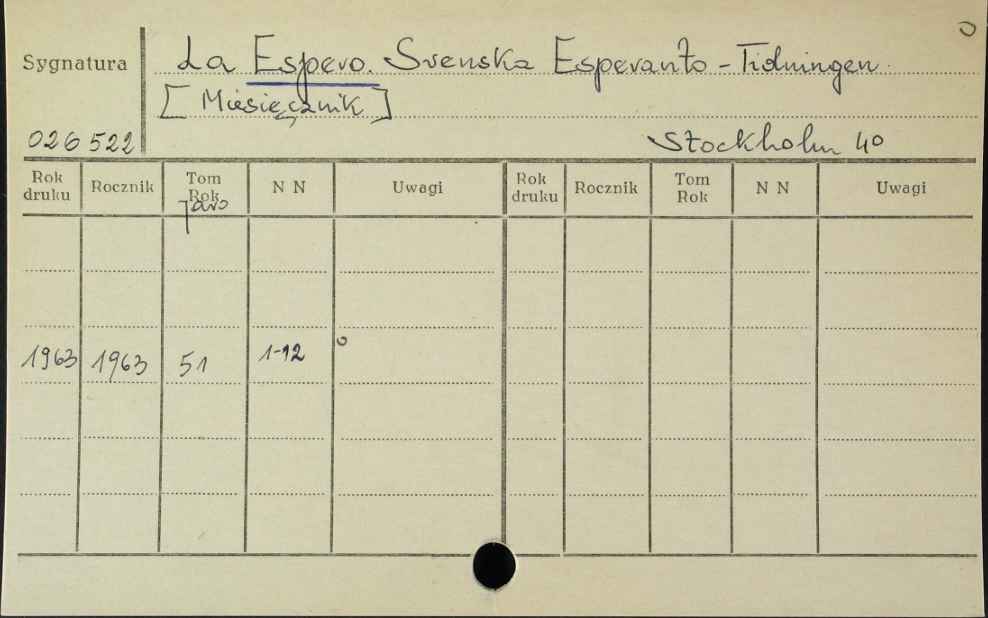 o
Sygnatura La Espero. Svenska Esperanto-Tidningen
[Miesięcznik]
026522 Stockholm 40
Rok druku Rocznik Tom Rok Jaro N N Uwagi Rok druku Rocznik Tom Rok N N Uwagi
1963 1963 51 1-12 o